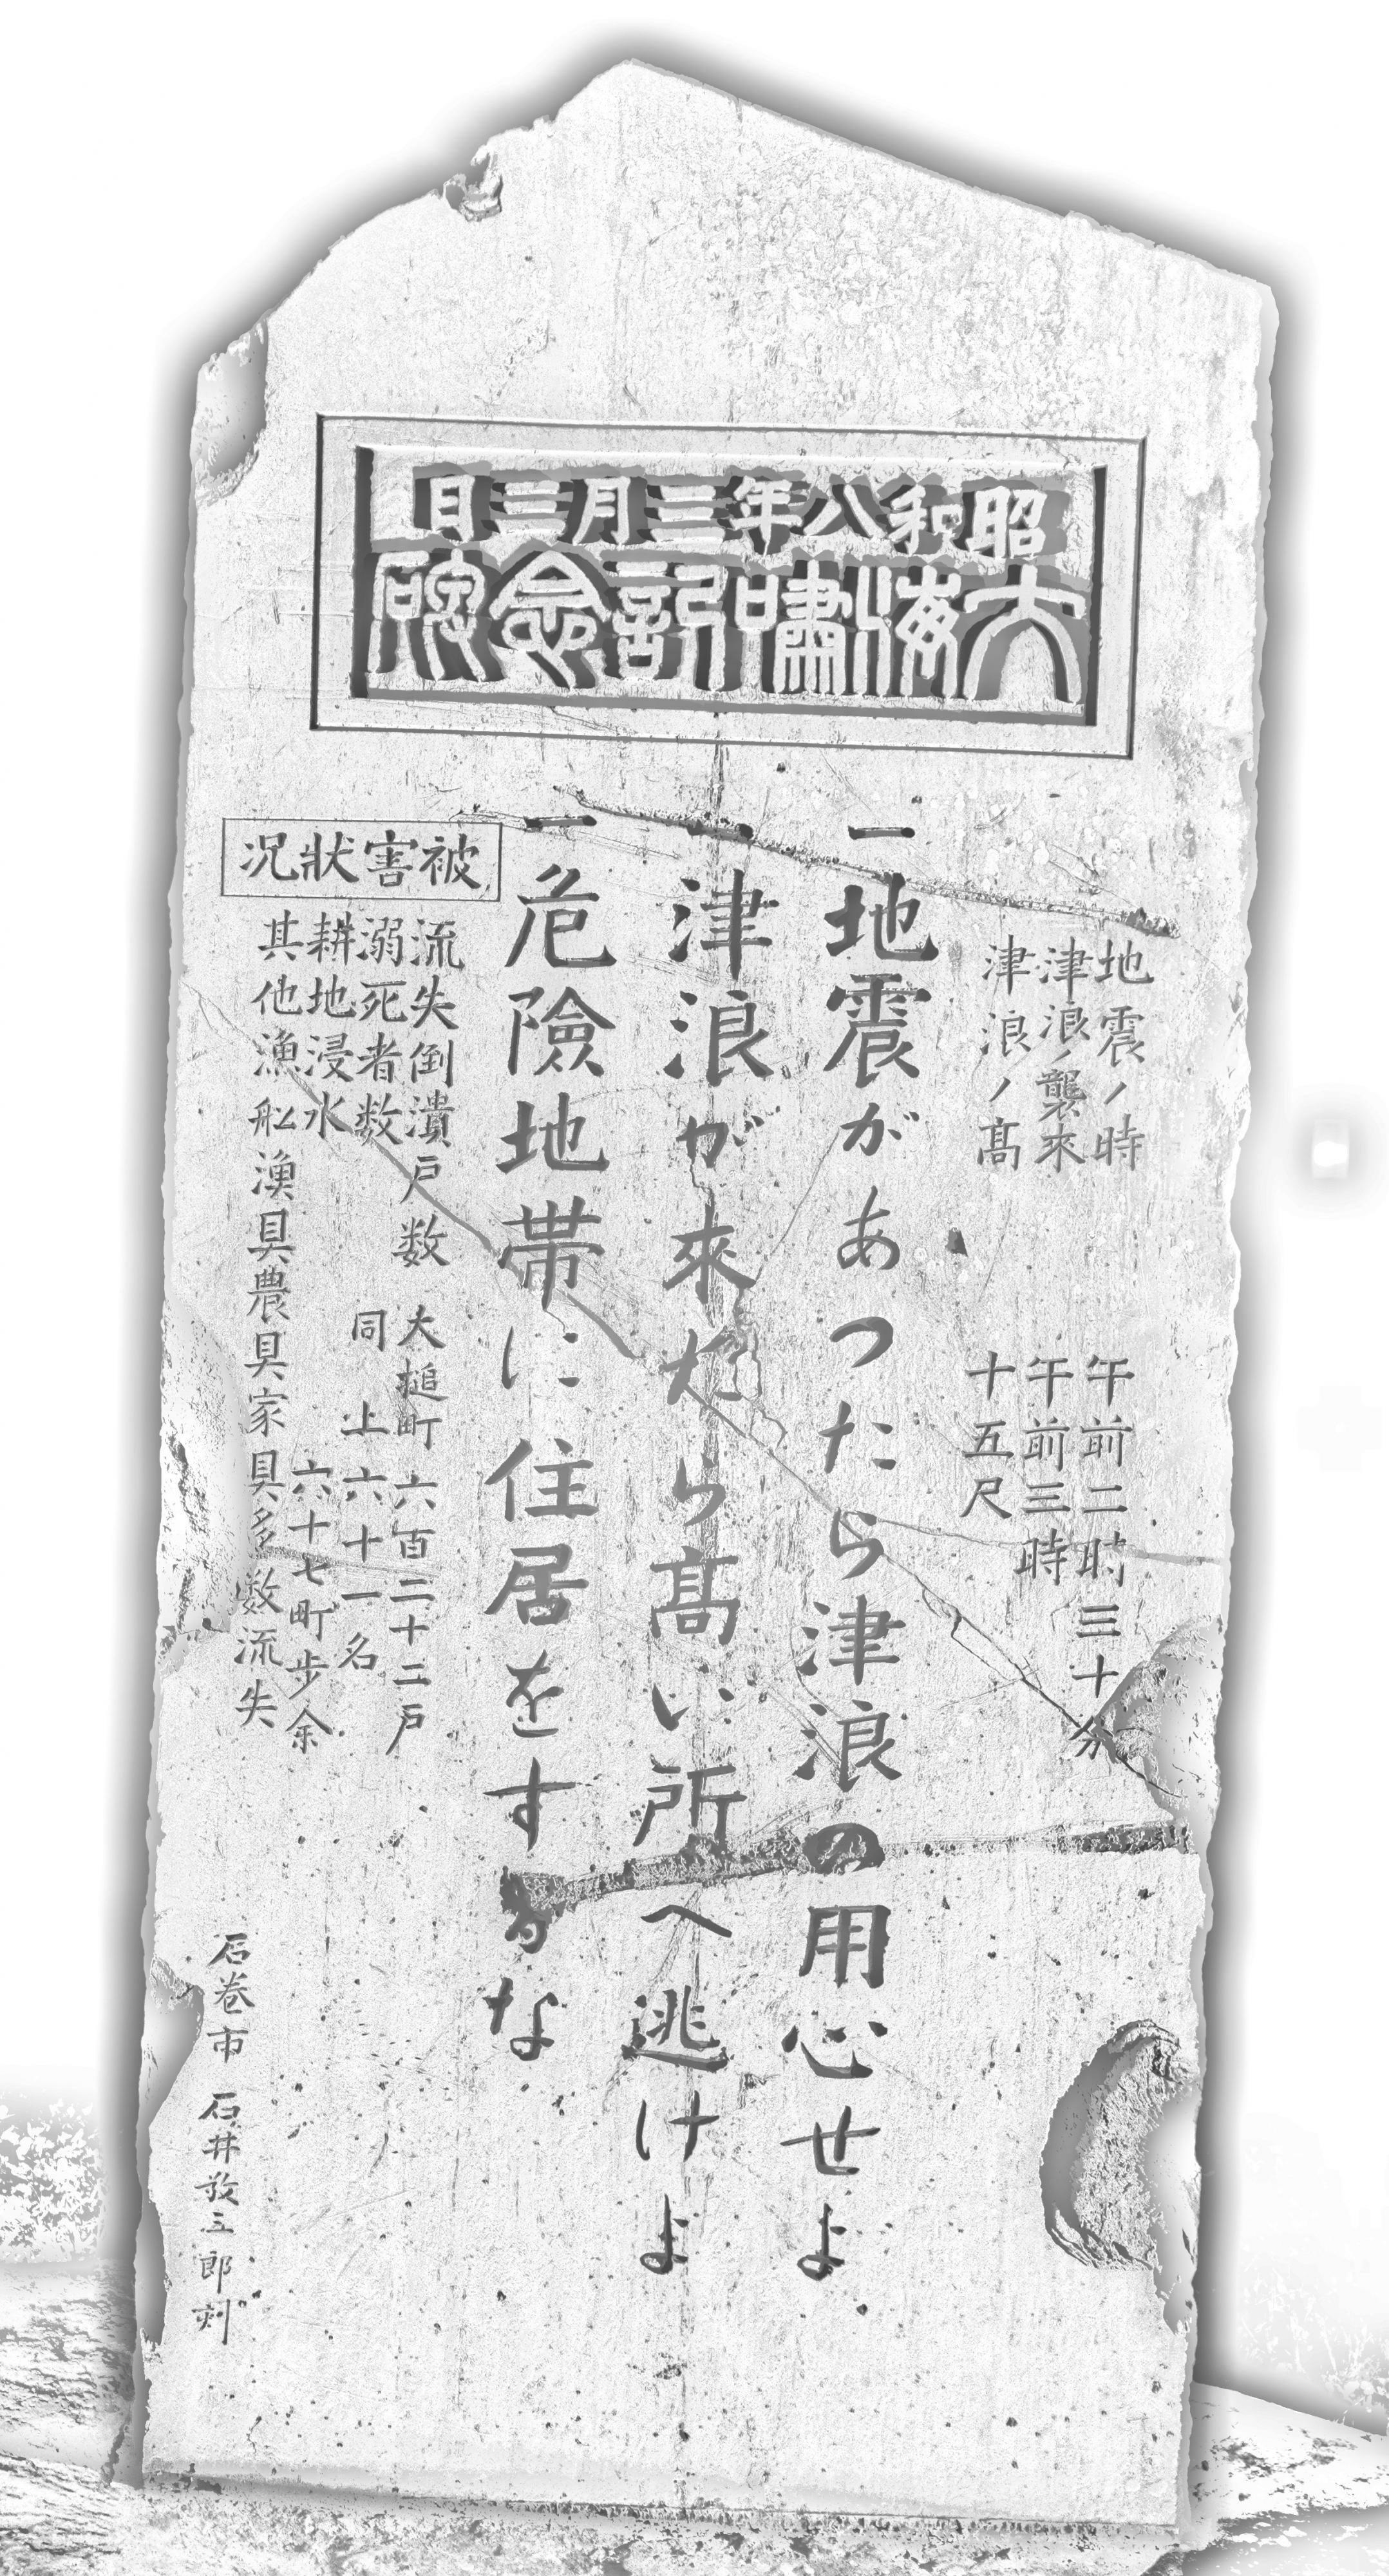 昭和八年三月三日
大海嘯記念碑
地震ノ時 午前二時三十分
津浪ノ襲來 午前三時
津浪ノ髙 十五尺
一地震があつたら津浪の用心せよ
一津浪が來たら髙い所へ逃けよ
一危險地帯に住居をするな
被害狀況
流失倒潰戸数 大槌町 六百二十二戸
溺死者数 同上 六十一名
耕地浸水 六十七町步余
其他漁舩漁具農具家具多数流失
石巻市 石井 三郎刻